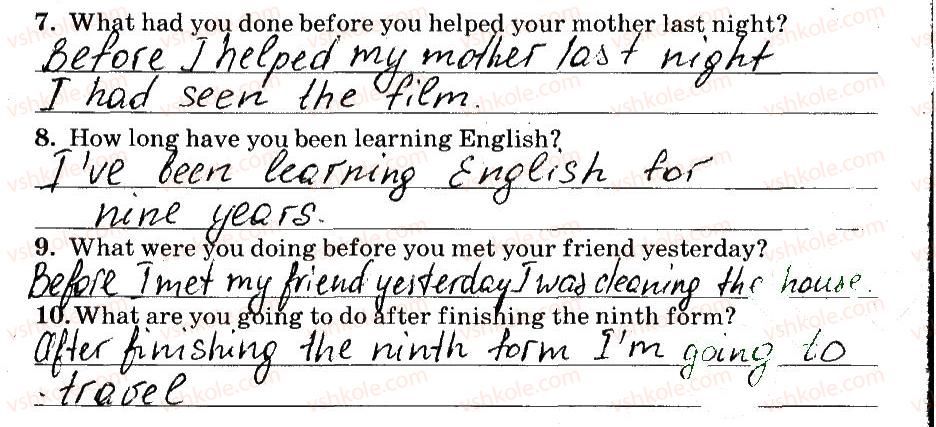 7. What had you done before you helped your mother last night?
Before I helped my mother last night
I had seen the film.
8. How long have you been learning English?
I've been learning English for
nine years.
9. What were you doing before you met your friend yesterday?
Before I met my friend yesterday I was cleaning the house.
10. What are you going to do after finishing the ninth form?
After finishing the ninth form I'm going to
travel